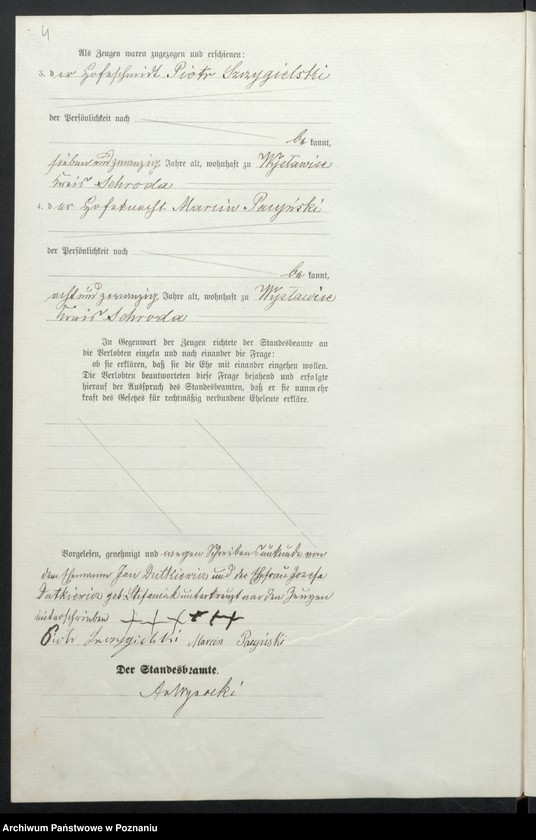 4
Als Zeugen waren zugezogen und erschienen:
3. der Hofschmidt Piotr Szczygielski
der Persönlichkeit nach
be kannt,
sieben und zwanzig Jahre alt, wohnhaft zu Wysławice
Kreis Schroda
4. der Hofeknecht Marcin Paczyński
der Persönlichkeit nach
be kannt,
acht und zwanzig Jahre alt, wohnhaft zu Wysławice
Kreis Schroda
In Gegenwart der Zeugen richtete der Standesbeamte an
die Verlobten einzeln und nach einander die Frage:
ob sie erklären, daß sie die Ehe mit einander eingehen wollen.
Die Verlobten beantworteten diese Frage bejahend und erfolgte
hierauf der Ausspruch des Standesbeamten, daß er sie nunmehr
kraft des Gesetzes für rechtmäßig verbundene Eheleute erkläre.
Vorgelesen, genehmigt und wegen Schreibensunkunde von
dem Ehemann Jan Dutkiewicz und der Ehefrau Jozefa
Dutkiewicz geb. Stefaniak unterkreuzt von den Zeugen
unterschrieben +++ +++
Piotr Szczygielski Marcin Paczyński
Der Standesbeamte.
Archiwum Państwowe w Poznaniu